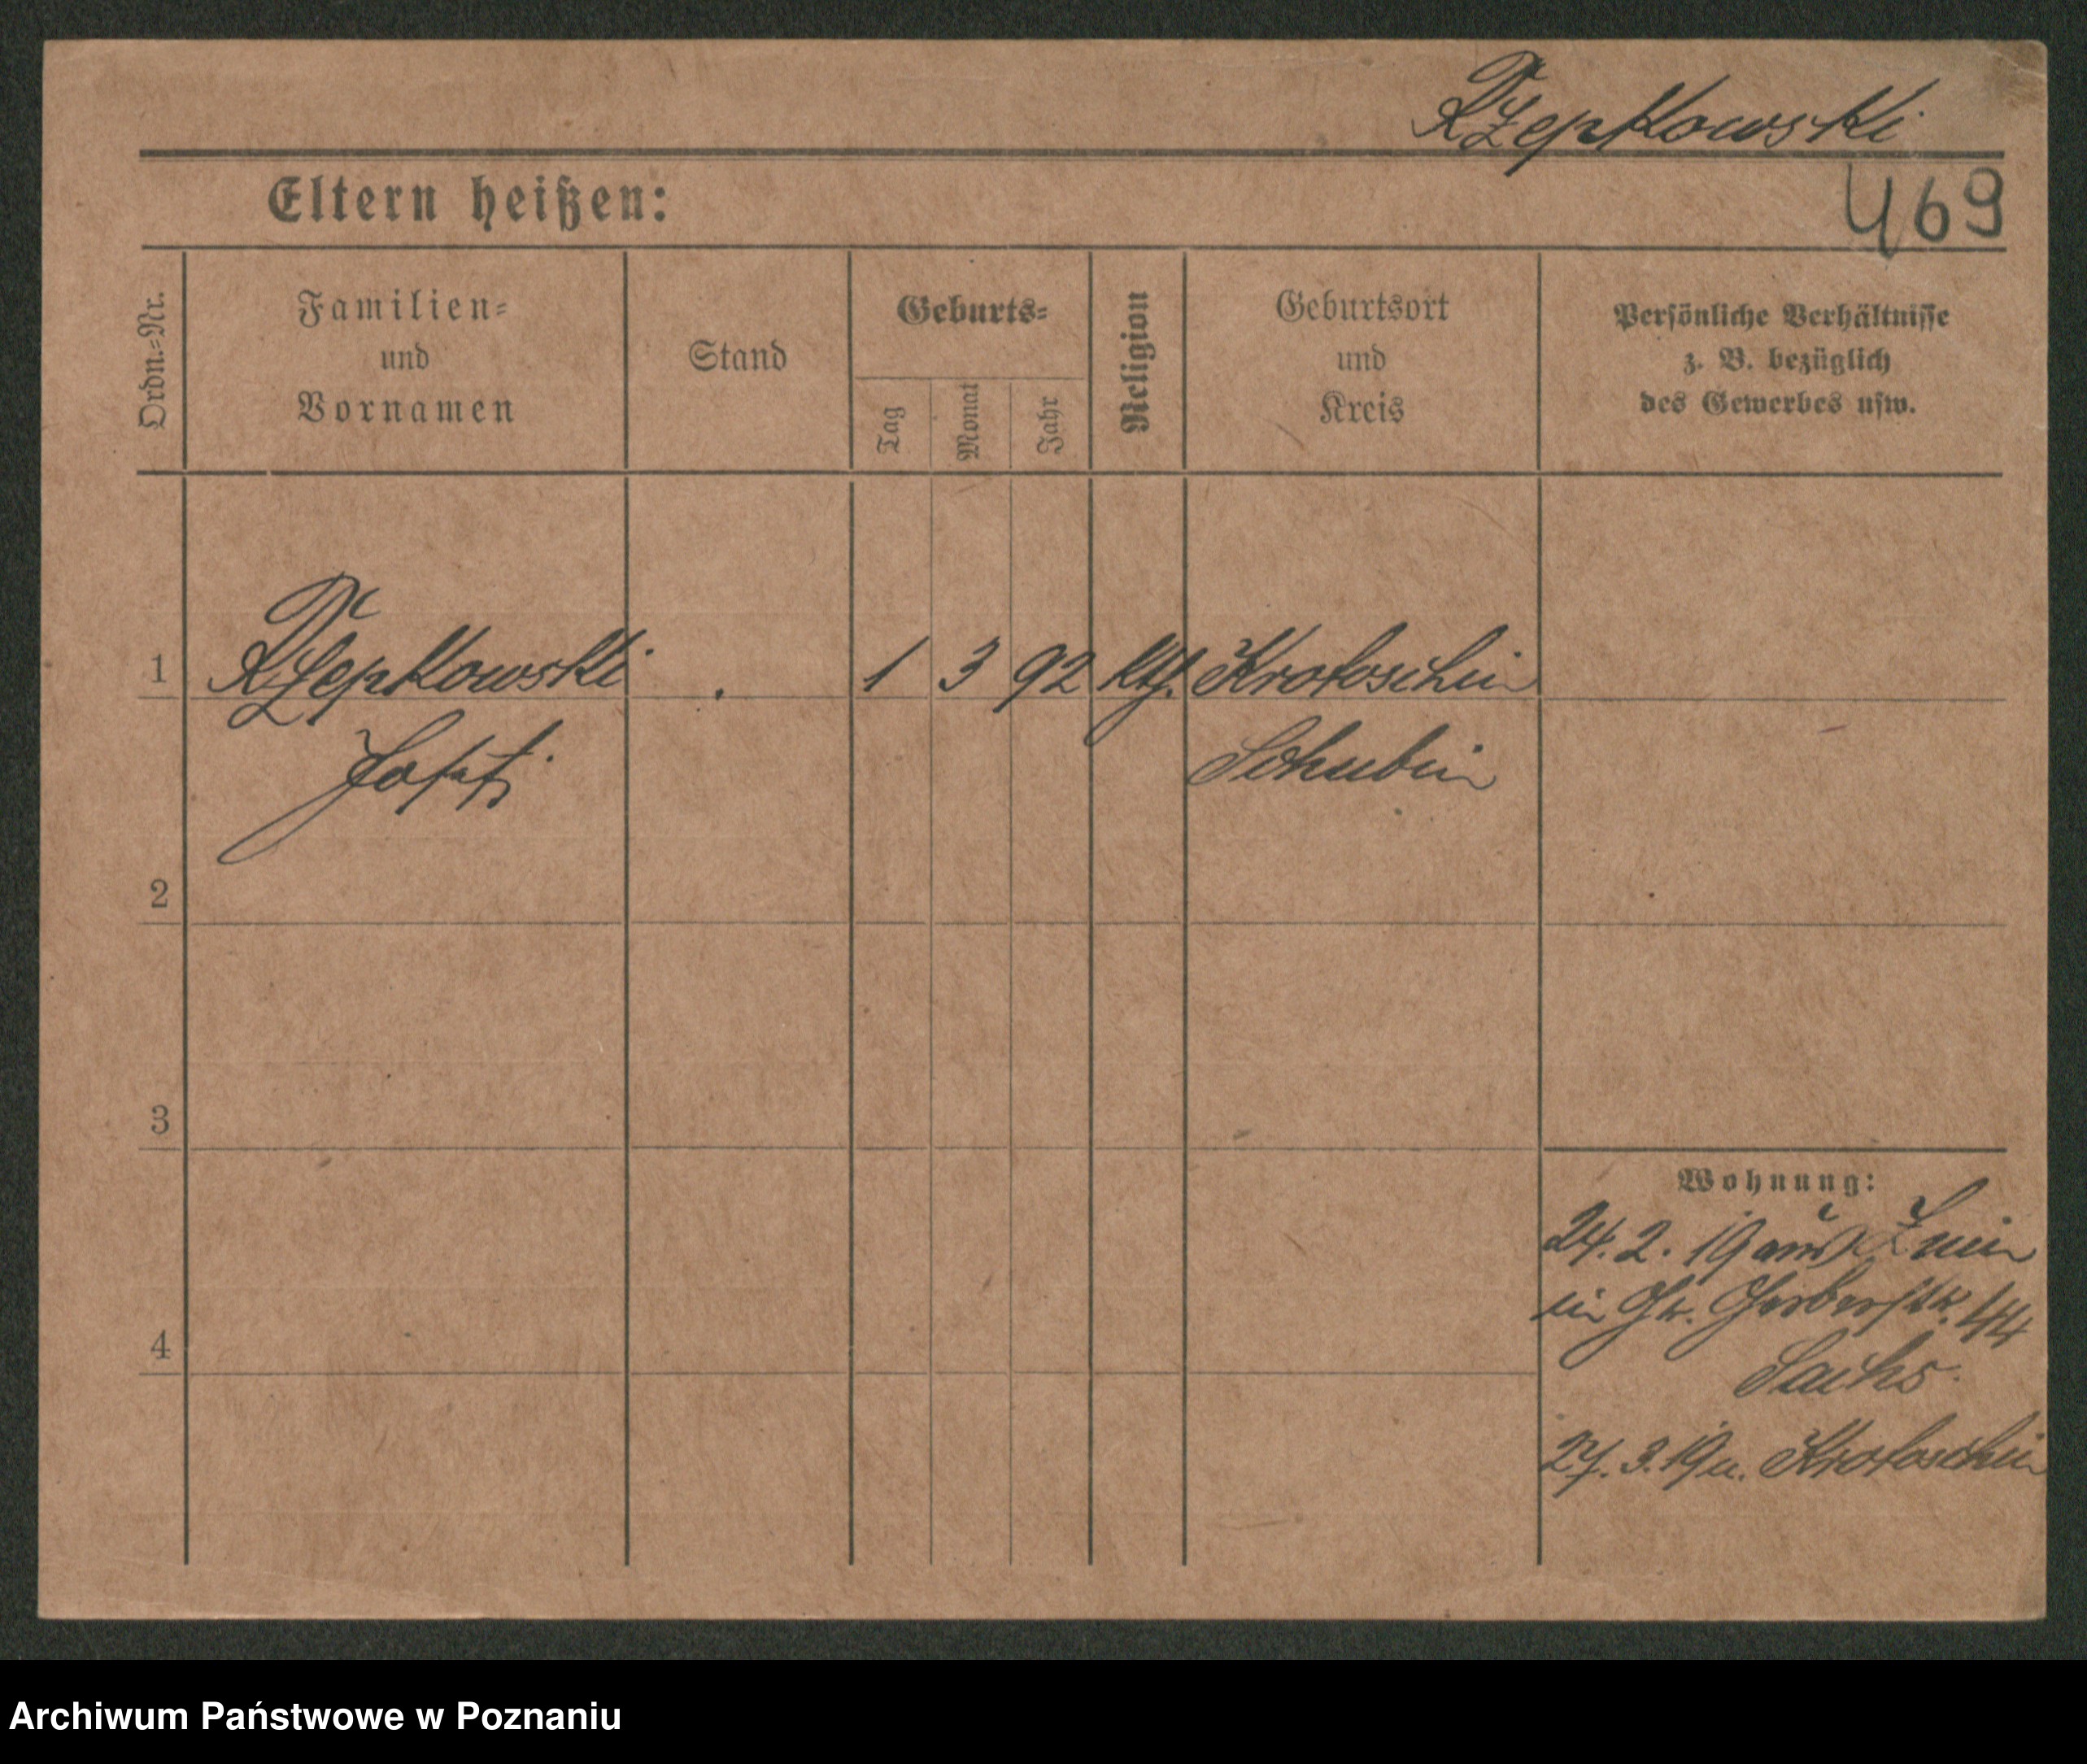 Rzepkowski
Eltern heißen:
469
Ordn.-Nr.
Familien-
und
Vornamen
Stand
Geburts-
Tag
Monat
Jahr
Religion
Geburtsort
und
Kreis
Persönliche Verhältnisse
z. B. bezüglich
des Gewerbes usw.
1 Rzepkowski . 1 3 92 kth. Krotoschin
Josef Schubin
2
3
4
Wohnung:
24. 2. 19 aus Znin
in Gr. Gerberstr. 44
Sachs.
27. 3. 19 n. Krotoschin
Archiwum Państwowe w Poznaniu